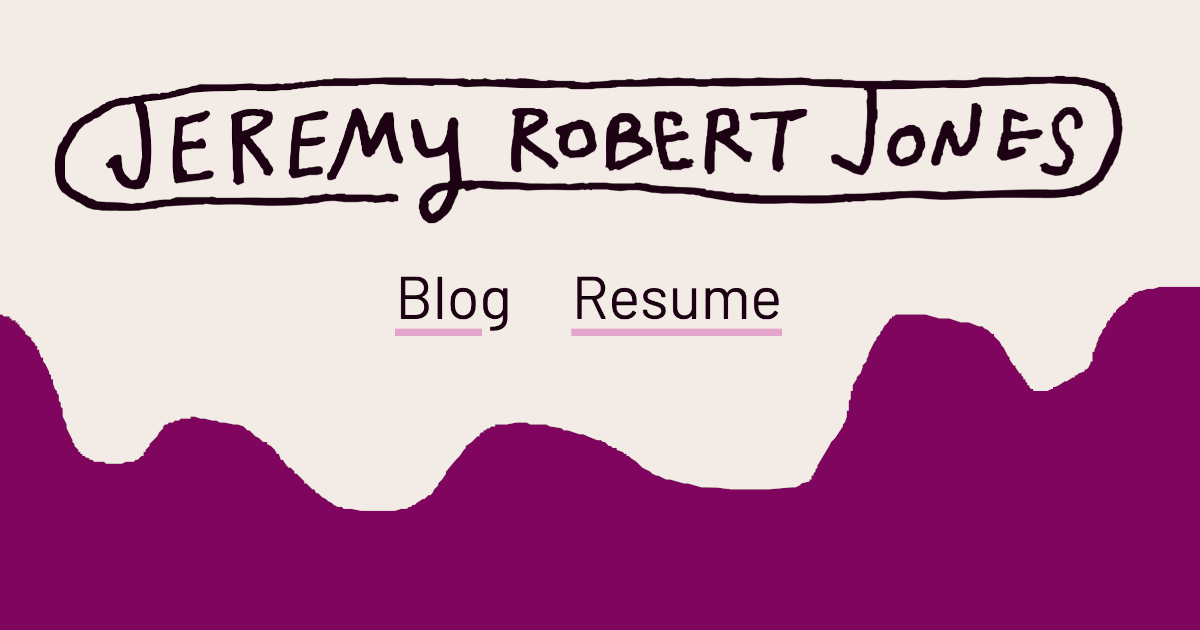 JEREMY ROBERT JONES
Blog Resume